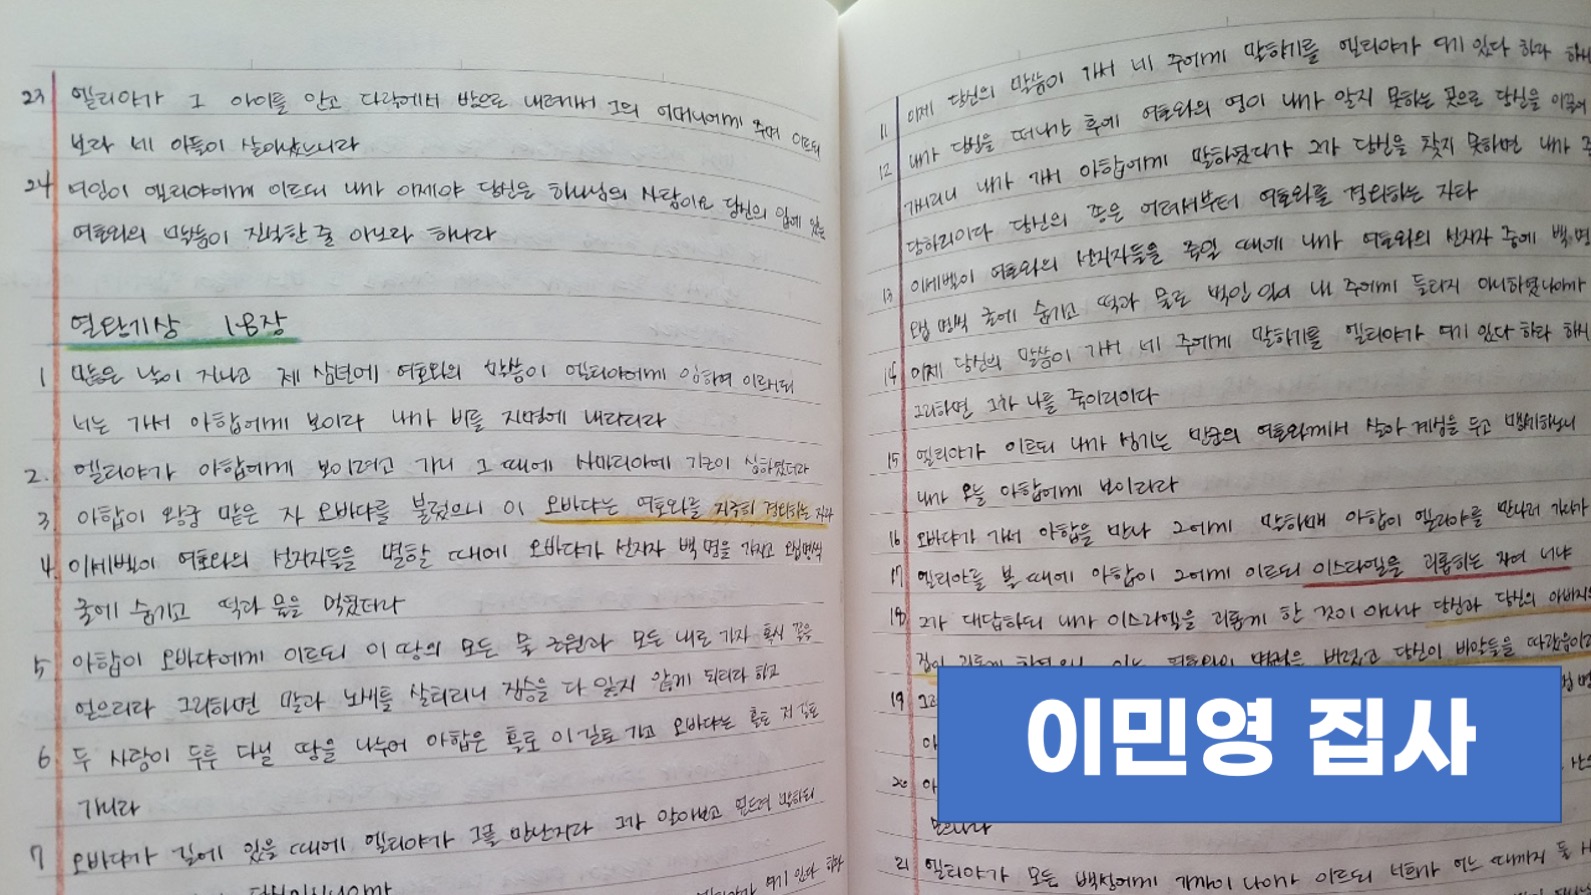 23 엘리야가 그 아이를 안고 다락에서 방으로 내려가서 그의 어머니에게 주며 이르되
보라 네 아들이 살아났느니라
24 여인이 엘리야에게 이르되 내가 이제야 당신은 하나님의 사람이요 당신의 입에 있는
여호와의 말씀이 진실한 줄 아노라 하니라
열왕기상 18장
1 많은 날이 지나고 제 삼년에 여호와의 말씀이 엘리야에게 임하여 이르시되
너는 가서 아합에게 보이라 내가 비를 지면에 내리리라
2. 엘리야가 아합에게 보이려고 가니 그 때에 사마리아에 기근이 심하였더라
3. 아합이 왕궁 맡은 자 오바댜를 불렀으니 이 오바댜는 여호와를 지극히 경외하는 자라
4. 이세벨이 여호와의 선지자들을 멸할 때에 오바댜가 선지자 백 명을 가지고 오십명씩
굴에 숨기고 떡과 물을 먹였더라
5 아합이 오바댜에게 이르되 이 땅의 모든 물 근원과 모든 내로 가자 혹시 꼴을
얻으리라 그리하면 말과 노새를 살리리니 짐승을 다 잃지 않게 되리라 하고
6. 두 사람이 두루 다닐 땅을 나누어 아합은 홀로 이 길로 가고 오바댜는 홀로 저 길로
가니라
7 오바댜가 길에 있을 때에 엘리야가 그를 만난지라 그가 알아보고 엎드려 말하되
엘리야가 여기 있다 하라
11 이제 당신의 말씀이 가서 네 주에게 말하기를 엘리야가 여기 있다 하라 하시
12 내가 당신을 떠나간 후에 여호와의 영이 내가 알지 못하는 곳으로 당신을 이끌어
가시리니 내가 가서 아합에게 말하였다가 그가 당신을 찾지 못하면 내가
당하리이다 당신의 종은 어려서부터 여호와를 경외하는 자라
13 이세벨이 여호와의 선지자들을 죽일 때에 내가 여호와의 선지자 중에 백 명
오십 명씩 굴에 숨기고 떡과 물로 먹인 일이 내 주에게 들리지 아니하였나이까
14 이제 당신의 말씀이 가서 네 주에게 말하기를 엘리야가 여기 있다 하라 하시
그리하면 그가 나를 죽이리이다
15 엘리야가 이르되 내가 섬기는 만군의 여호와께서 살아 계심을 두고 맹세하노니
내가 오늘 아합에게 보이리라
16 오바댜가 가서 아합을 만나 그에게 말하매 아합이 엘리야를 만나러 가다가
17 엘리야를 볼 때에 아합이 그에게 이르되 이스라엘을 괴롭히는 자여 너냐
18 그가 대답하되 내가 이스라엘을 괴롭게 한 것이 아니라 당신과 당신의 아버지의
집이 버렸고 당신이 바알들을 따랐음이라
19
20
21 엘리야가 모든 백성에게 가까이 나아가 이르되 너희가 어느 때까지 둘
이민영 집사